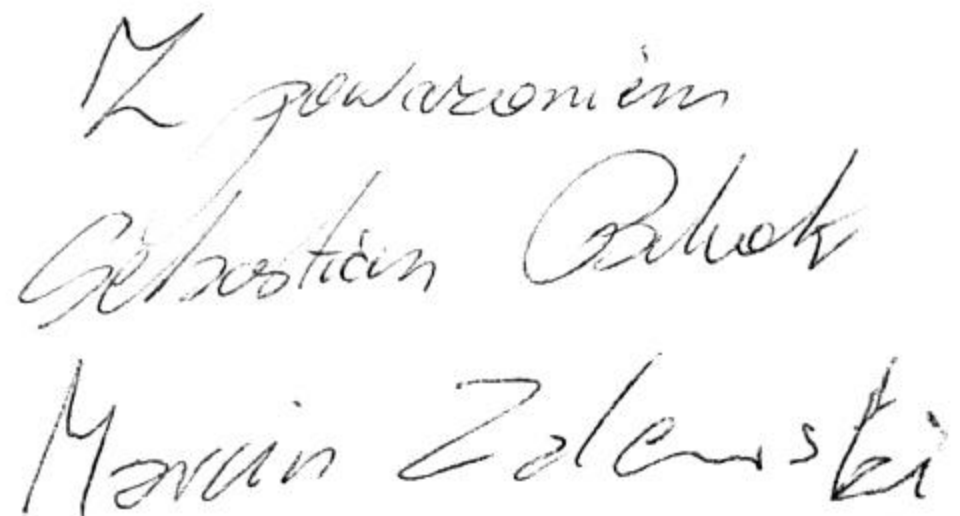 Z poważaniem
Sebastian
Marcin Zalewski